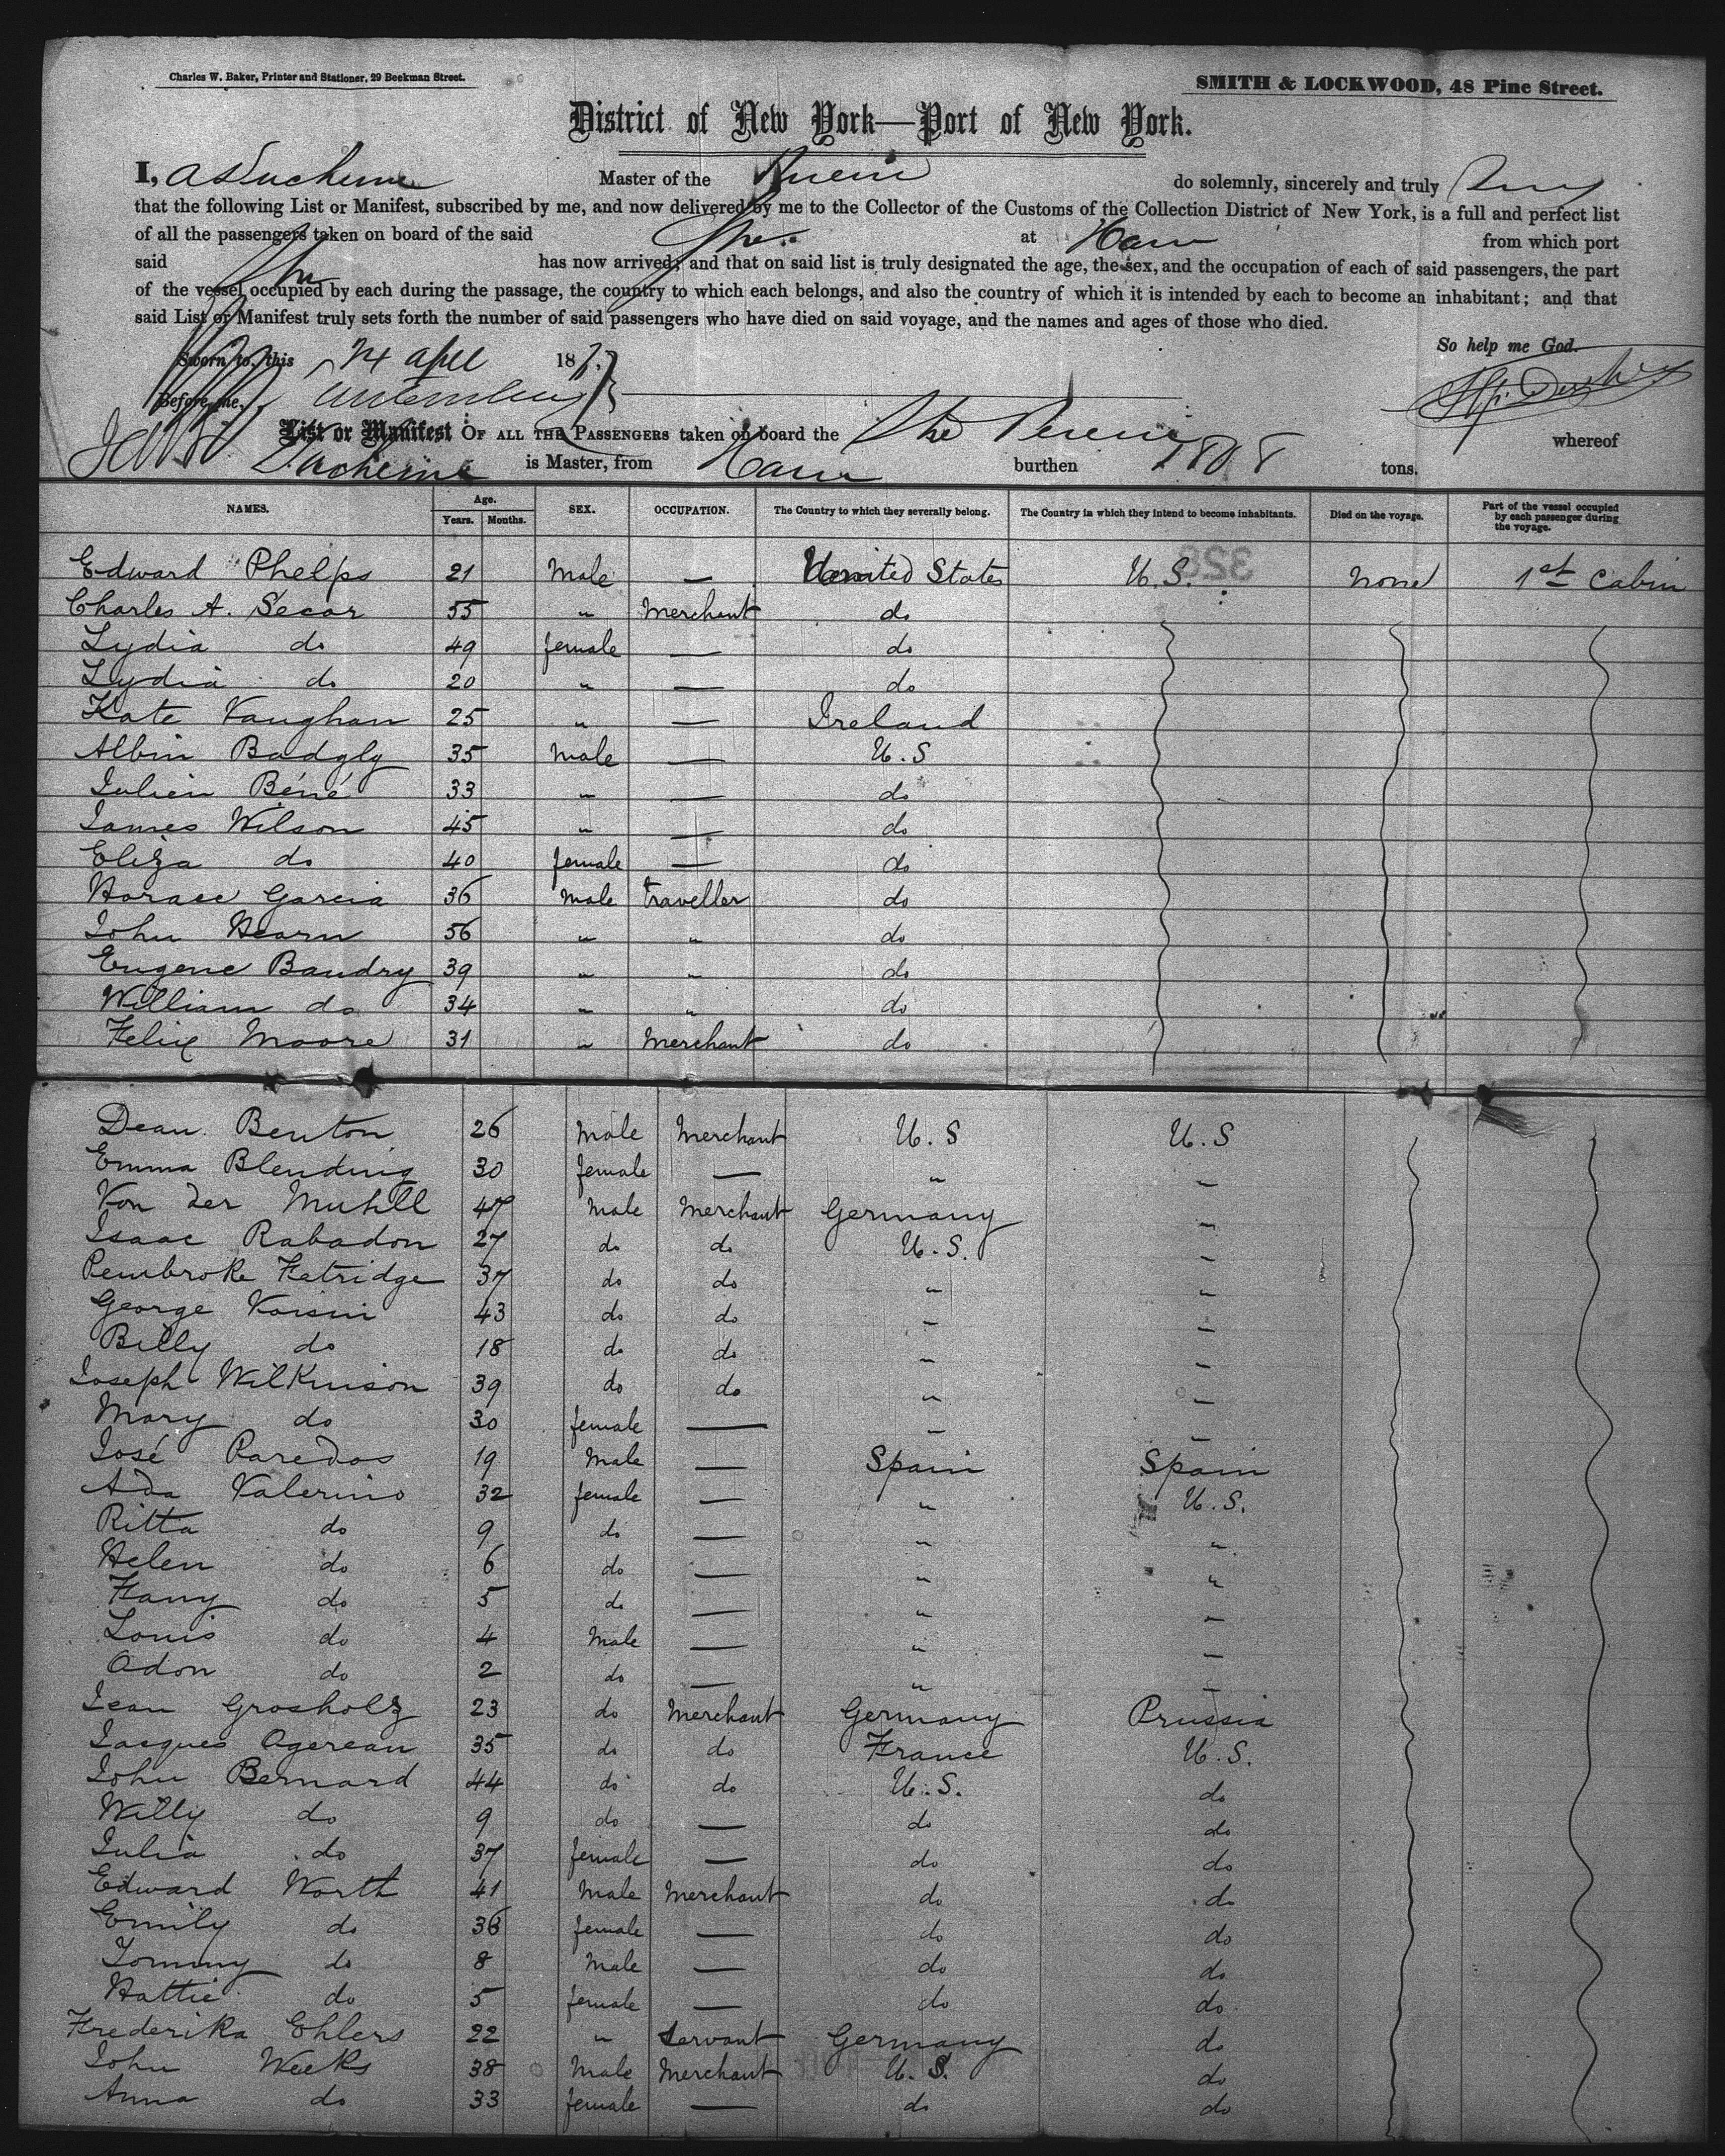 Charles W. Baker, Printer and Stationer, 29 Beekman Street.
SMITH & LOCKWOOD, 48 Pine Street.
District of New York—Port of New York.
I, Master of the do solemnly, sincerely and truly
that the following List or Manifest, subscribed by me, and now delivered by me to the Collector of the Customs of the Collection District of New York, is a full and perfect list
of all the passengers taken on board of the said at from which port
said has now arrived; and that on said list is truly designated the age, the sex, and the occupation of each of said passengers, the part
of the vessel occupied by each during the passage, the country to which each belongs, and also the country of which it is intended by each to become an inhabitant; and that
said List or Manifest truly sets forth the number of said passengers who have died on said voyage, and the names and ages of those who died.
So help me God.
Sworn to, this 24 187
Before me,
List or Manifest OF ALL THE PASSENGERS taken on board the whereof
is Master, from burthen tons.
NAMES. Age. Years. Months. SEX. OCCUPATION. The Country to which they severally belong. The Country in which they intend to become inhabitants. Died on the voyage. Part of the vessel occupied by each passenger during the voyage.
Edward Phelps 21 Male — United States U.S. None 1st Cabin
Charles A. Secor 55 " Merchant do
Lydia do 49 female — do
Lydia do 20 " — do
Kate Vaughan 25 " — Ireland
Albin Badgly 35 Male — U.S
Julien Béné 33 " — do
James Wilson 45 " — do
Eliza do 40 female — do
Horace Garcia 36 Male traveller do
John Hearn 56 " " do
Eugene Baudry 39 " " do
William do 34 " " do
Felix Moore 31 " Merchant do
Dean Benton 26 Male Merchant U.S U.S
Emma Blending 30 female — " "
Von der Muhll 47 Male Merchant Germany "
Isaac Rabadon 27 do do U.S. "
Pembroke Fetridge 37 do do " "
George Voisin 43 do do " "
Billy do 18 do do " "
Joseph Wilkinson 39 do do " "
Mary do 30 female — " "
José Paredos 19 Male — Spain Spain
Ada Valerino 32 female — " U.S.
Ritta do 9 do — " "
Helen do 6 do — " "
Fany do 5 do — " "
Louis do 4 Male — " "
Odon do 2 do — " "
Jean Grosholz 23 do Merchant Germany Prussia
Jacques Ogereau 35 do do France U.S.
John Bernard 44 do do U.S. do
Willy do 9 do — do do
Julia do 37 female — do do
Edward Worth 41 Male Merchant do do
Emily do 36 female — do do
Tommy do 8 Male — do do
Hattie do 5 female — do do
Frederika Ehlers 22 " Servant Germany do
John Weeks 38 Male Merchant U.S. do
Anna do 33 female — do do